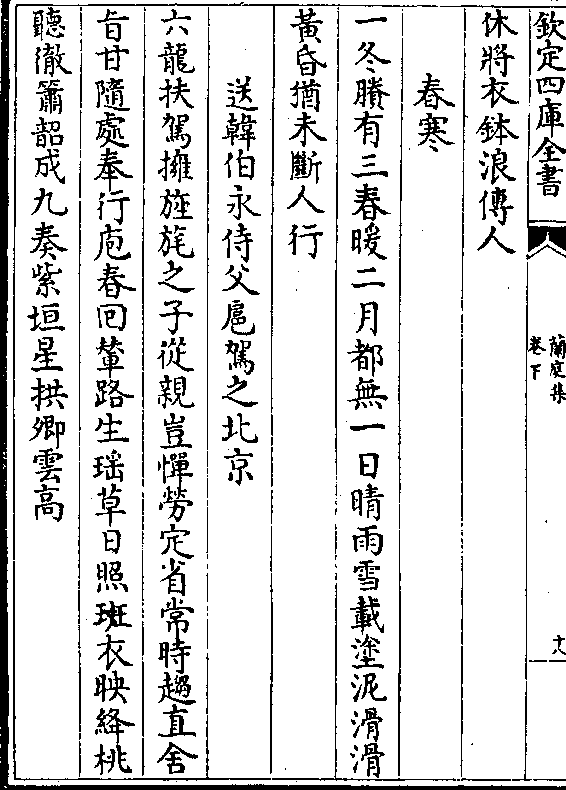 欽定四庫全書
蘭庭集
卷下
十八
休將衣鉢浪傳人
春寒
一冬賸有三春暖二月都無一日晴雨雪載塗泥滑滑
黃昏猶未斷人行
送韓伯永侍父扈駕之北京
六龍扶駕擁旌旄之子從親豈憚勞定省常時趨直舍
旨甘隨處奉行庖春回輦路生瑶草日照斑衣映絳桃
聽徹簫韶成九奏紫垣星拱卿雲高